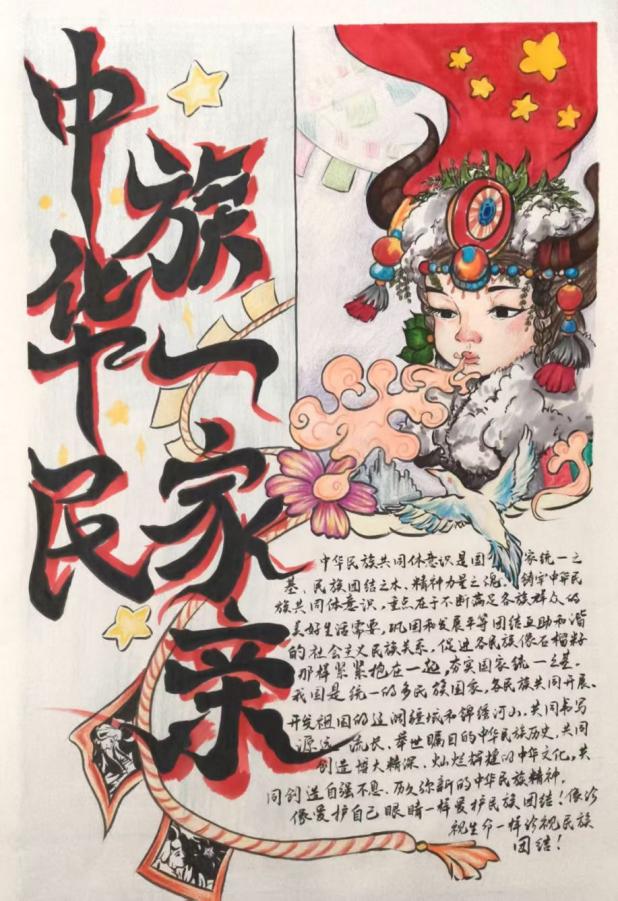 中华民
族一家亲
中华民族共同体意识是国家统一之
基、民族团结之本、精神力量之魂。铸牢中华民
族共同体意识,重点在于不断满足各族群众的
美好生活需要,巩固和发展平等团结互助和谐
的社会主义民族关系,促进各民族像石榴籽
那样紧紧抱在一起,夯实国家统一之基。
我国是统一的多民族国家,各民族共同开展、
开发祖国的辽阔疆域和锦绣河山,共同书写
源远流长、举世瞩目的中华民族历史,共同
创造博大精深、灿烂辉煌的中华文化,共
同创造自强不息、历久弥新的中华民族精神,
像爱护自己眼睛一样爱护民族团结!像珍
视生命一样珍视民族
团结!